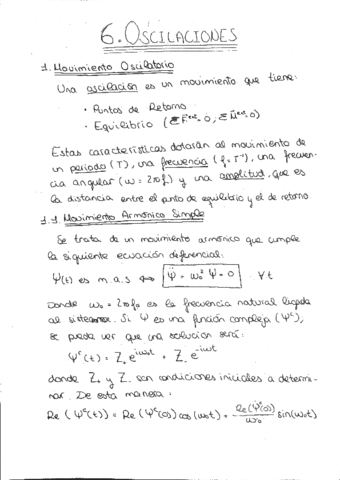 6. OSCILACIONES
1. Movimiento Oscilatorio
Una oscilación es un movimiento que tiene:
· Puntos de Retorno
· Equilibrio (ΣF^ext = 0, ΣM^ext = 0)
Estas características dotarán al movimiento de
un periodo (T), una frecuencia (f = T⁻¹), una frecuen-
cia angular (ω = 2πf) y una amplitud, que es
la distancia entre el punto de equilibrio y el de retorno.
1.1. Movimiento Armónico Simple
Se trata de un movimiento armónico que cumple
la siguiente ecuación diferencial:
Ψ(t) es m.a.s ⟺ Ψ̈ + ω₀² Ψ = 0 ∀t
Donde ω₀ = 2πf₀ es la frecuencia natural ligada
al sistema. Si Ψ es una función compleja (Ψᶜ),
se puede ver que una solución será:
Ψᶜ(t) = Z₊ e^iω₀t + Z₋ e^-iω₀t
donde Z₊ y Z₋ son condiciones iniciales a determi-
nar. De esta manera:
Re(Ψᶜ(t)) = Re(Ψᶜ(0)) cos(ω₀t) + Re(Ψ̇ᶜ(0))/ω₀ sin(ω₀t)